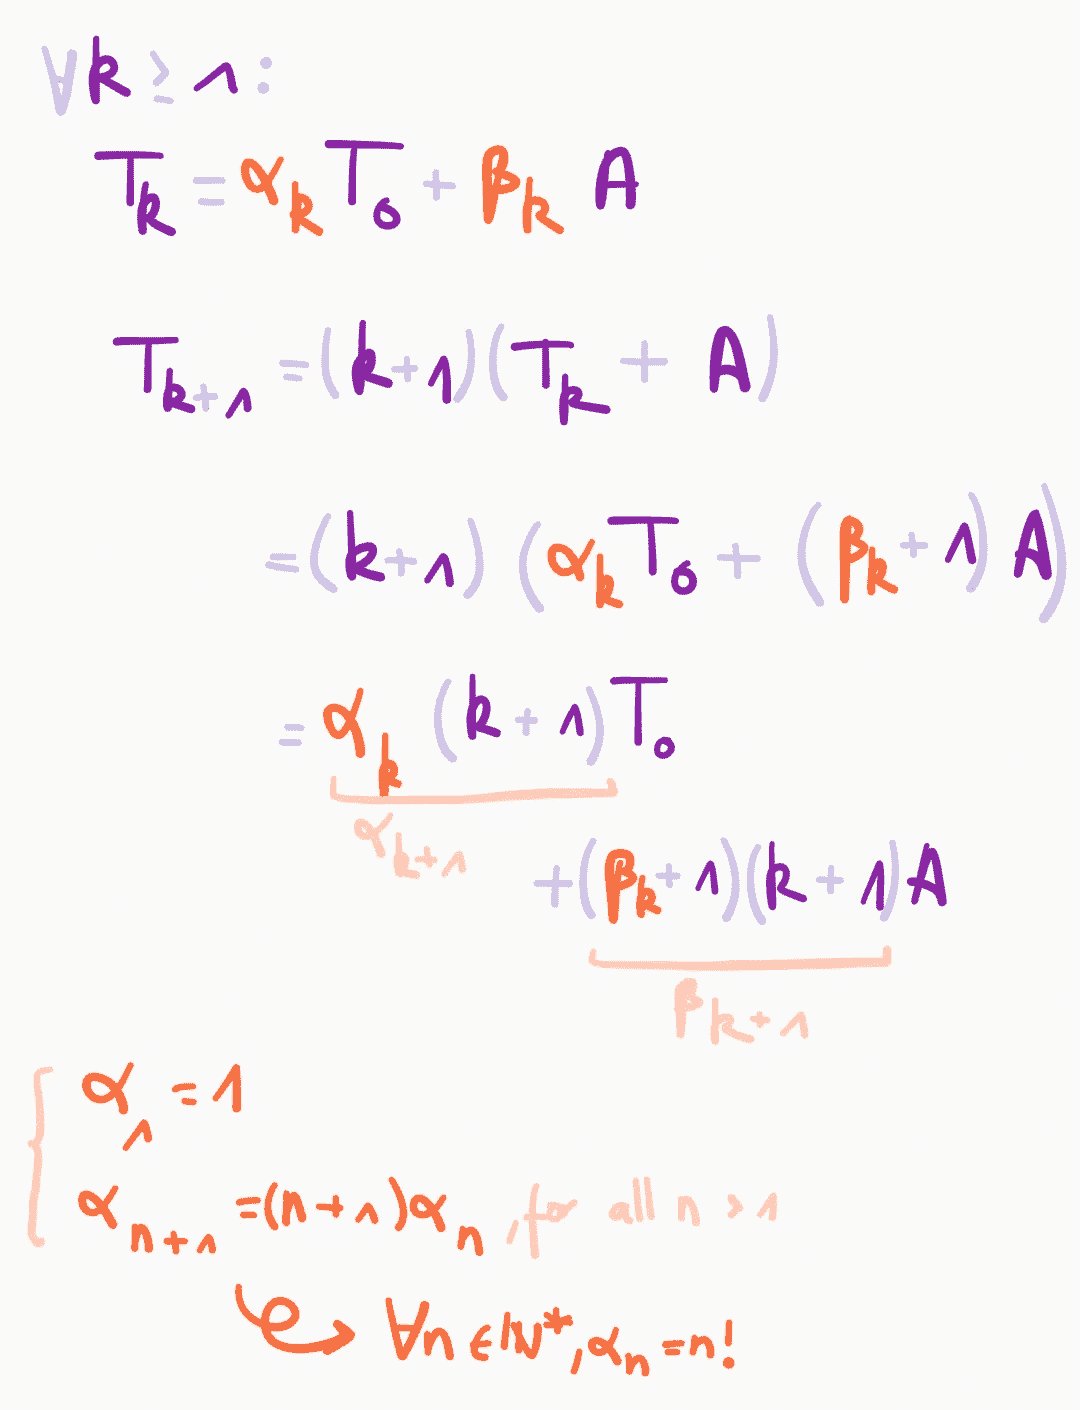 ∀k ≥ 1 :
T_k = α_k T_0 + β_k A
T_{k+1} = (k+1)(T_k + A)
= (k+1) (α_k T_0 + (β_k + 1) A)
= α_k (k+1) T_0
α_{k+1}
+ (β_k + 1)(k + 1) A
β_{k+1}
α_1 = 1
α_{n+1} = (n+1) α_n , for all n > 1
∀n ∈ ℕ*, α_n = n!